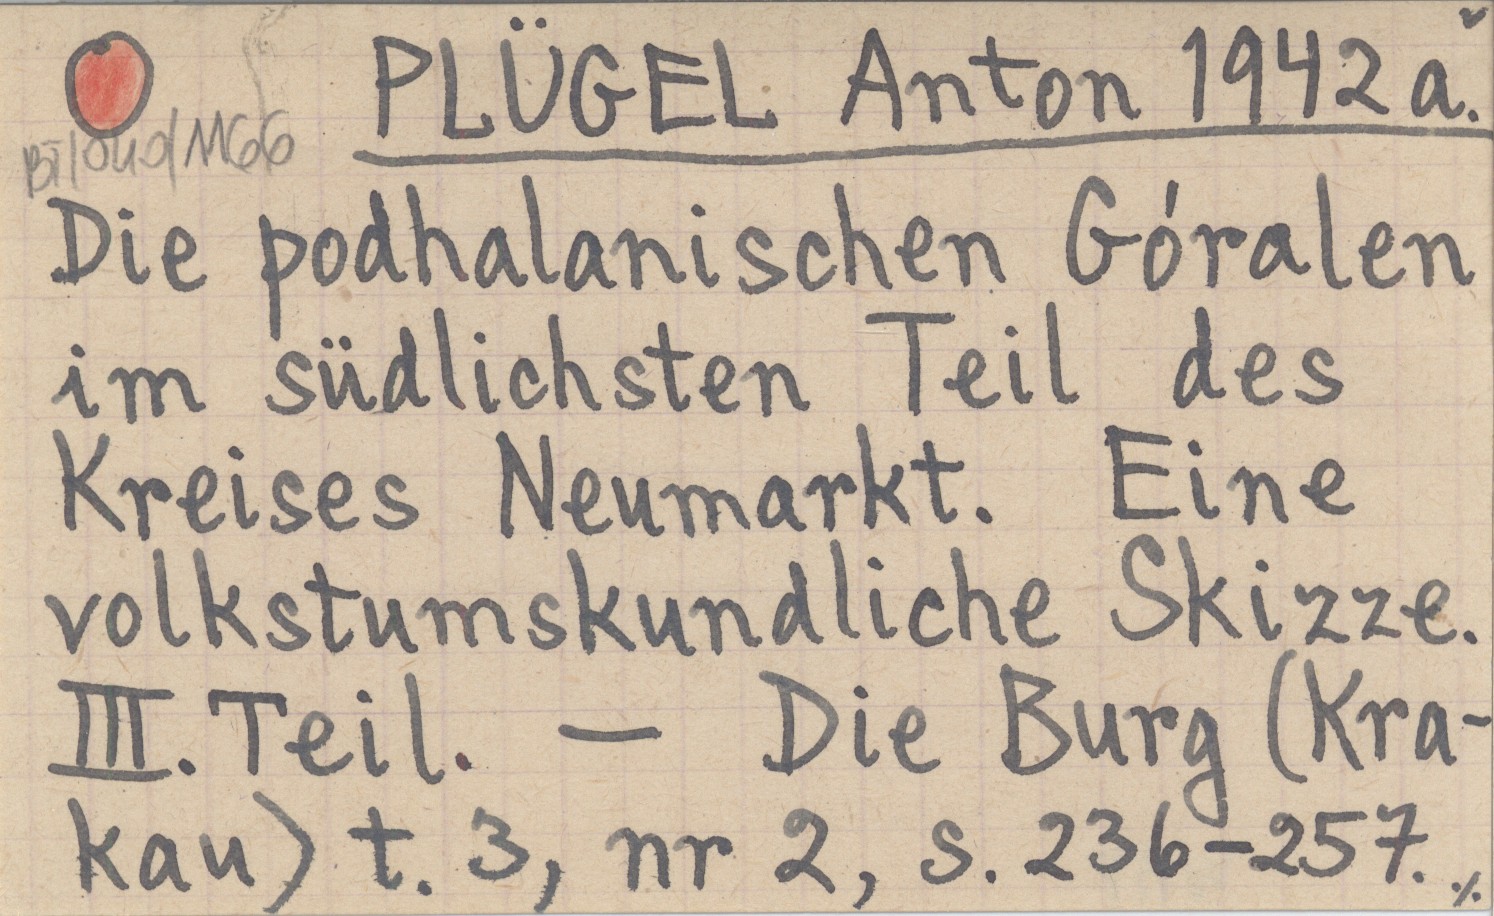 PLÜGEL Anton 1942a.
Die podhalanischen Góralen
im südlichsten Teil des
Kreises Neumarkt. Eine
volkstumskundliche Skizze.
III. Teil. — Die Burg (Kra-
kau) t. 3, nr 2, s. 236-257. ./.